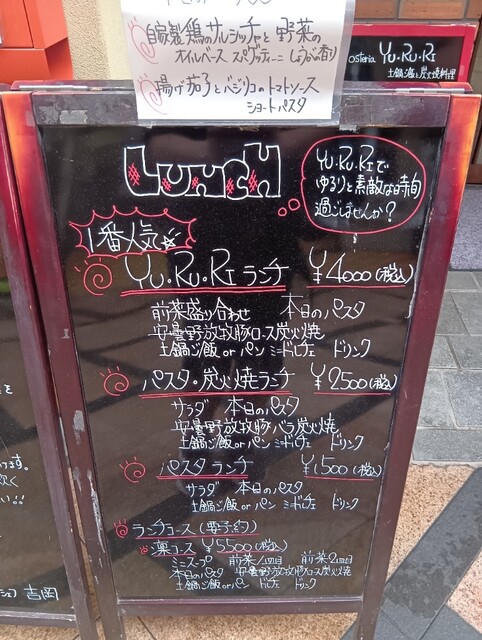 自家製鶏のサルシッチャと野菜の
オイルベース スパゲッティーニ しょうがの香り
揚げ茄子とバジリコのトマトソース
ショートパスタ
osteria YU.RU.RI
土鍋ご飯と炭火焼料理
LUNCH
YU.RU.RIで
ゆるりと素敵な時間
過ごしませんか?
1番人気☆
YU.RU.RIランチ ¥4000(税込)
前菜盛り合わせ 本日のパスタ
安曇野放牧豚ロース炭火焼
土鍋ご飯orパン ミニドルチェ ドリンク
パスタ・炭火焼ランチ ¥2500(税込)
サラダ 本日のパスタ
安曇野放牧豚バラ炭火焼
土鍋ご飯orパン ミニドルチェ ドリンク
パスタランチ ¥1500(税込)
サラダ 本日のパスタ
土鍋ご飯orパン ミニドルチェ ドリンク
ランチコース(要予約)
¥5500(税込)
ミニスープ 前菜1皿目 前菜2皿目
本日のパスタ 安曇野放牧豚ロース炭火焼
土鍋ご飯orパン ドルチェ ドリンク
吉岡